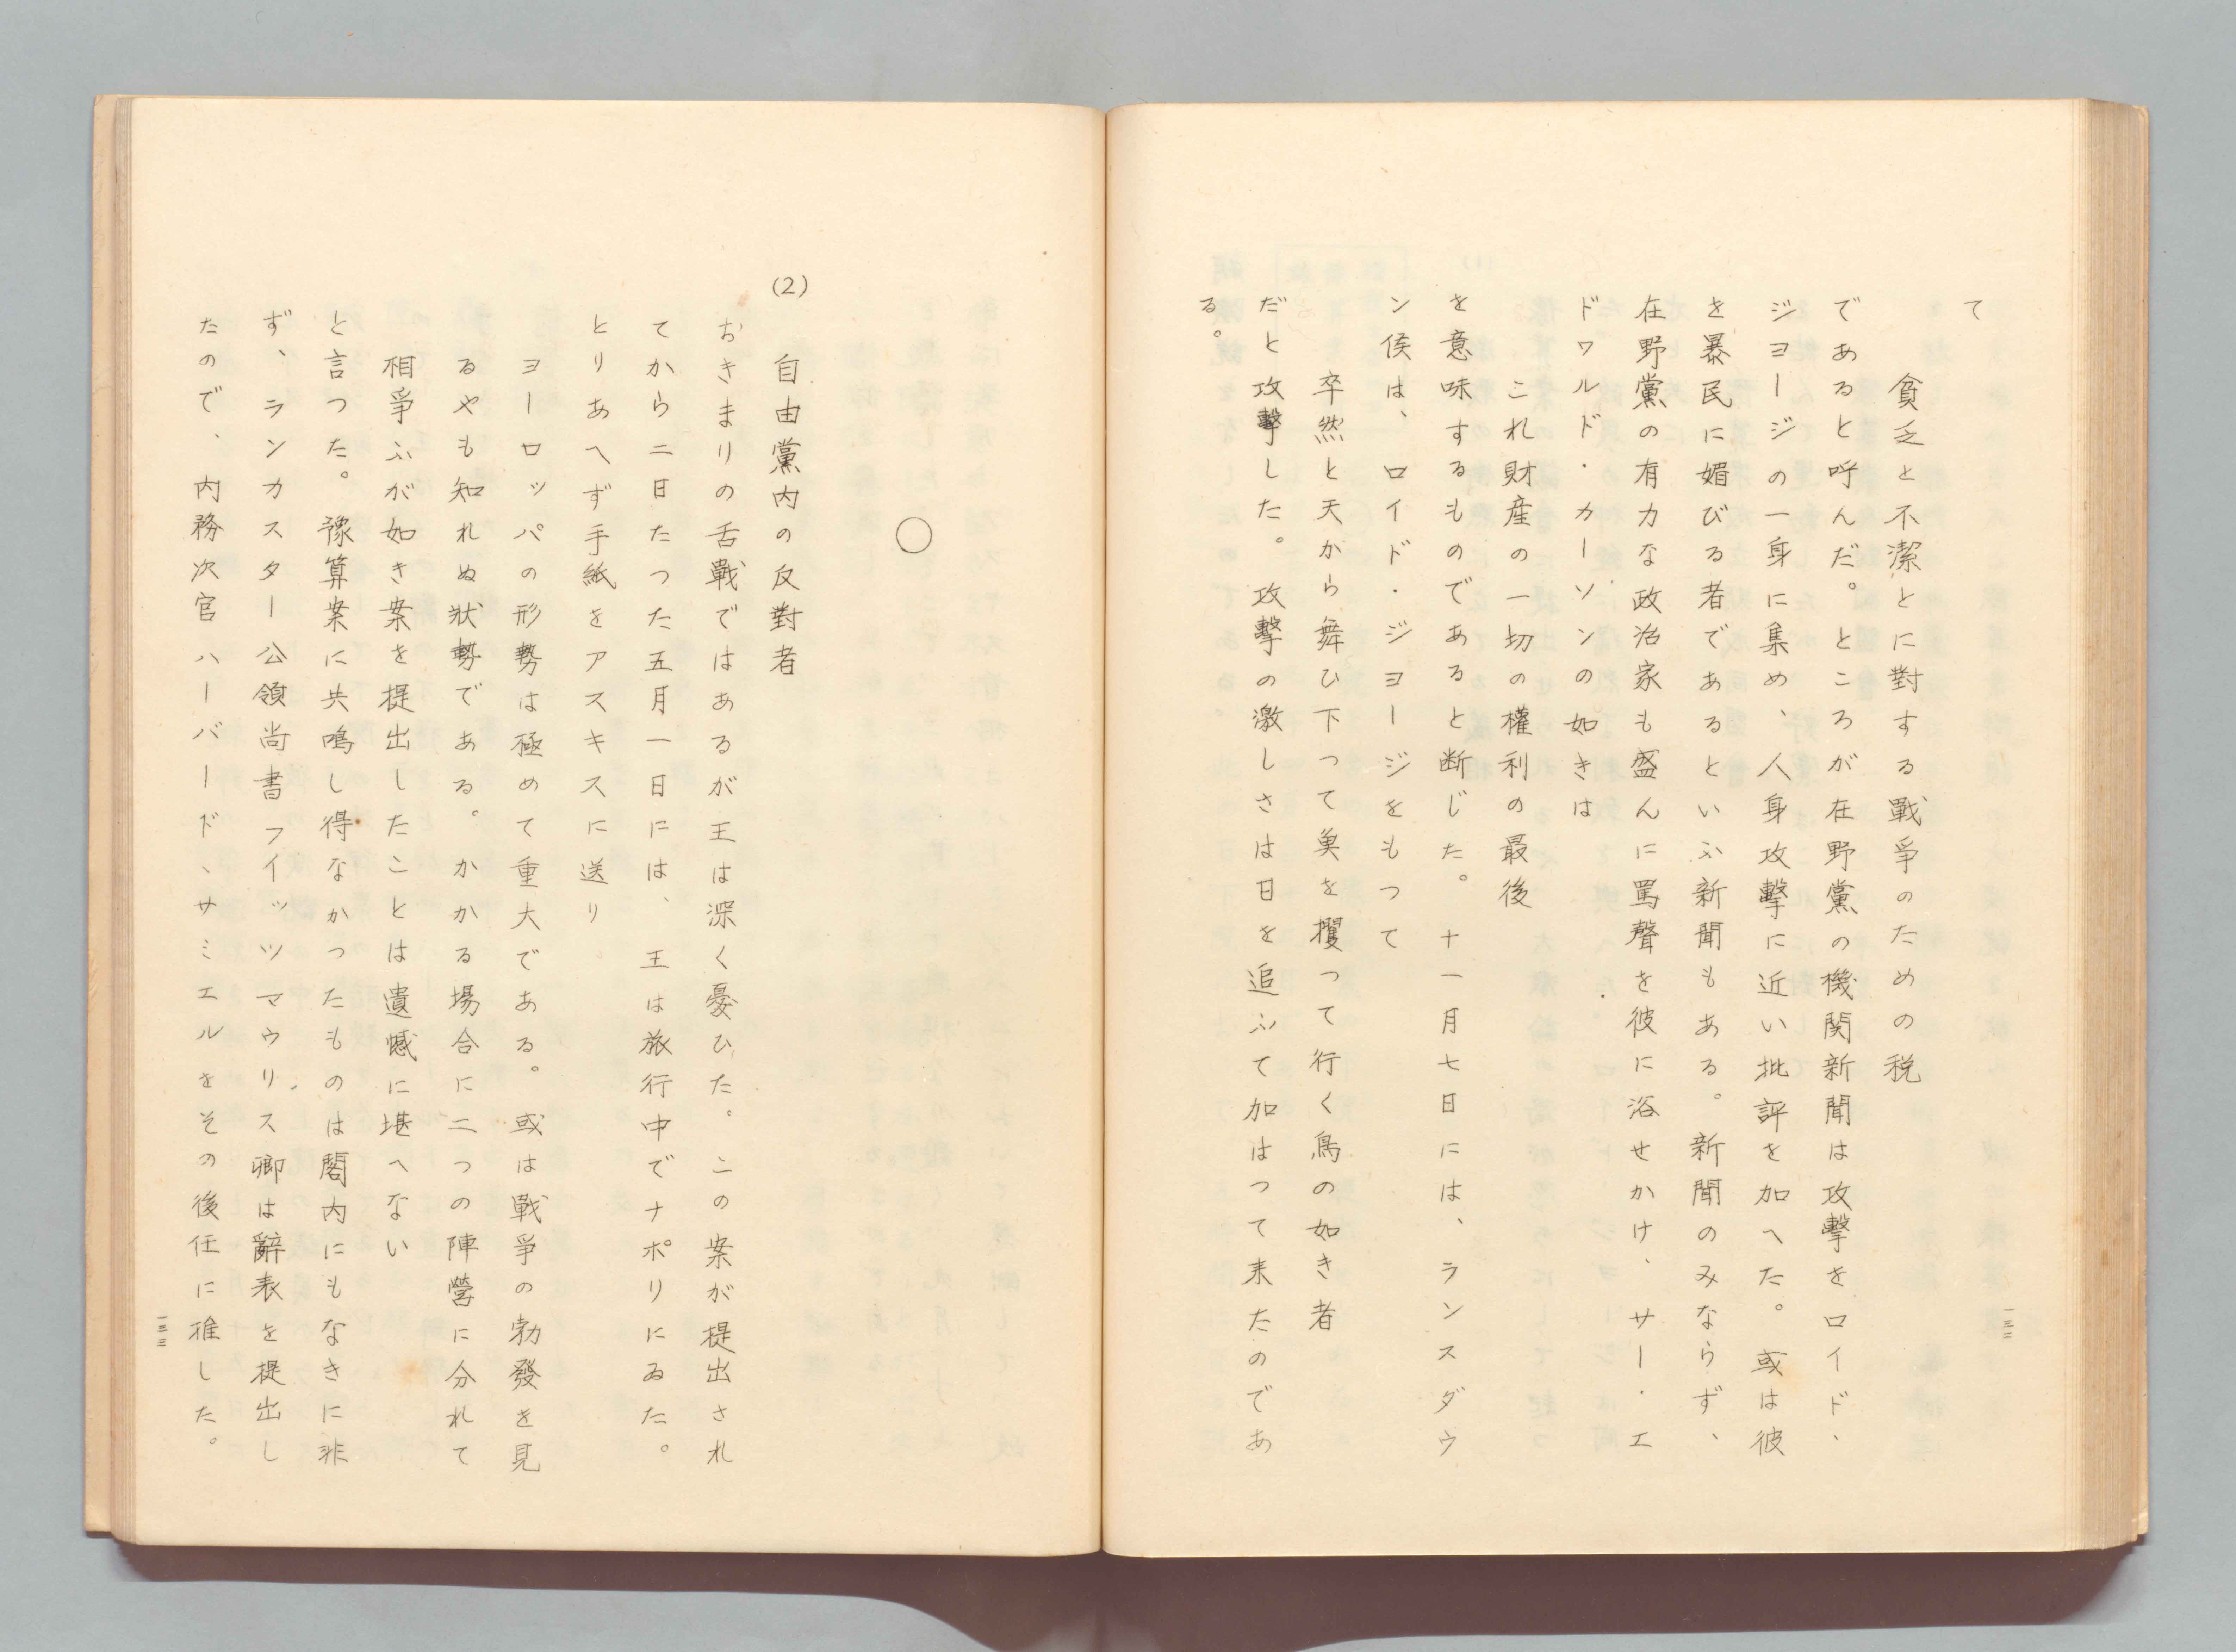 て
貧乏と不潔とに對する戰爭のための税
であると呼んだ。ところが在野黨の機関新聞は攻擊をロイド、
ジヨージの一身に集め、人身攻擊に近い批評を加へた。或は彼
を暴民に媚びる者であるといふ新聞もある。新聞のみならず、
在野黨の有力な政治家も盛んに罵聲を彼に浴せかけ、サー・エ
ドワルド・カーソンの如きは
これ財産の一切の權利の最後
を意味するものであると断じた。十一月七日には、ランスダウ
ン侯は、ロイド・ジヨージをもつて
卒然と天から舞ひ下つて兎を攫つて行く鳥の如き者
だと攻擊した。攻擊の激しさは日を追ふて加はつて来たのであ
る。
一三二
○
(2)
自由黨内の反對者
おきまりの舌戰ではあるが王は深く憂ひた。この案が提出され
てから二日たつた五月一日には、王は旅行中でナポリにゐた。
とりあへず手紙をアスキスに送り
ヨーロッパの形勢は極めて重大である。或は戰爭の勃發を見
るやも知れぬ狀勢である。かかる場合に二つの陣營に分れて
相爭ふが如き案を提出したことは遺憾に堪へない
と言つた。豫算案に共鳴し得なかつたものは閣内にもなきに非
ず、ランカスター公領尚書フイッツマウリス卿は辭表を提出し
たので、内務次官ハーバード、サミエルをその後任に推した。
一三三